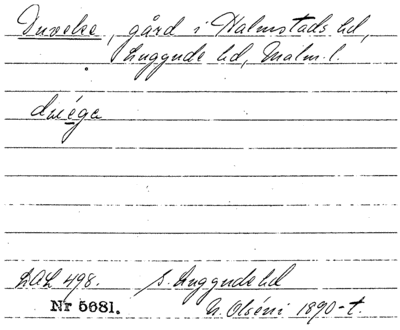 Duveke, gård i Halmstads sd,
Luggude hd, Malm. l.
duéga
LAL 498. s. Luggude hd
Nr 5681. N. Olséni 1890-t.